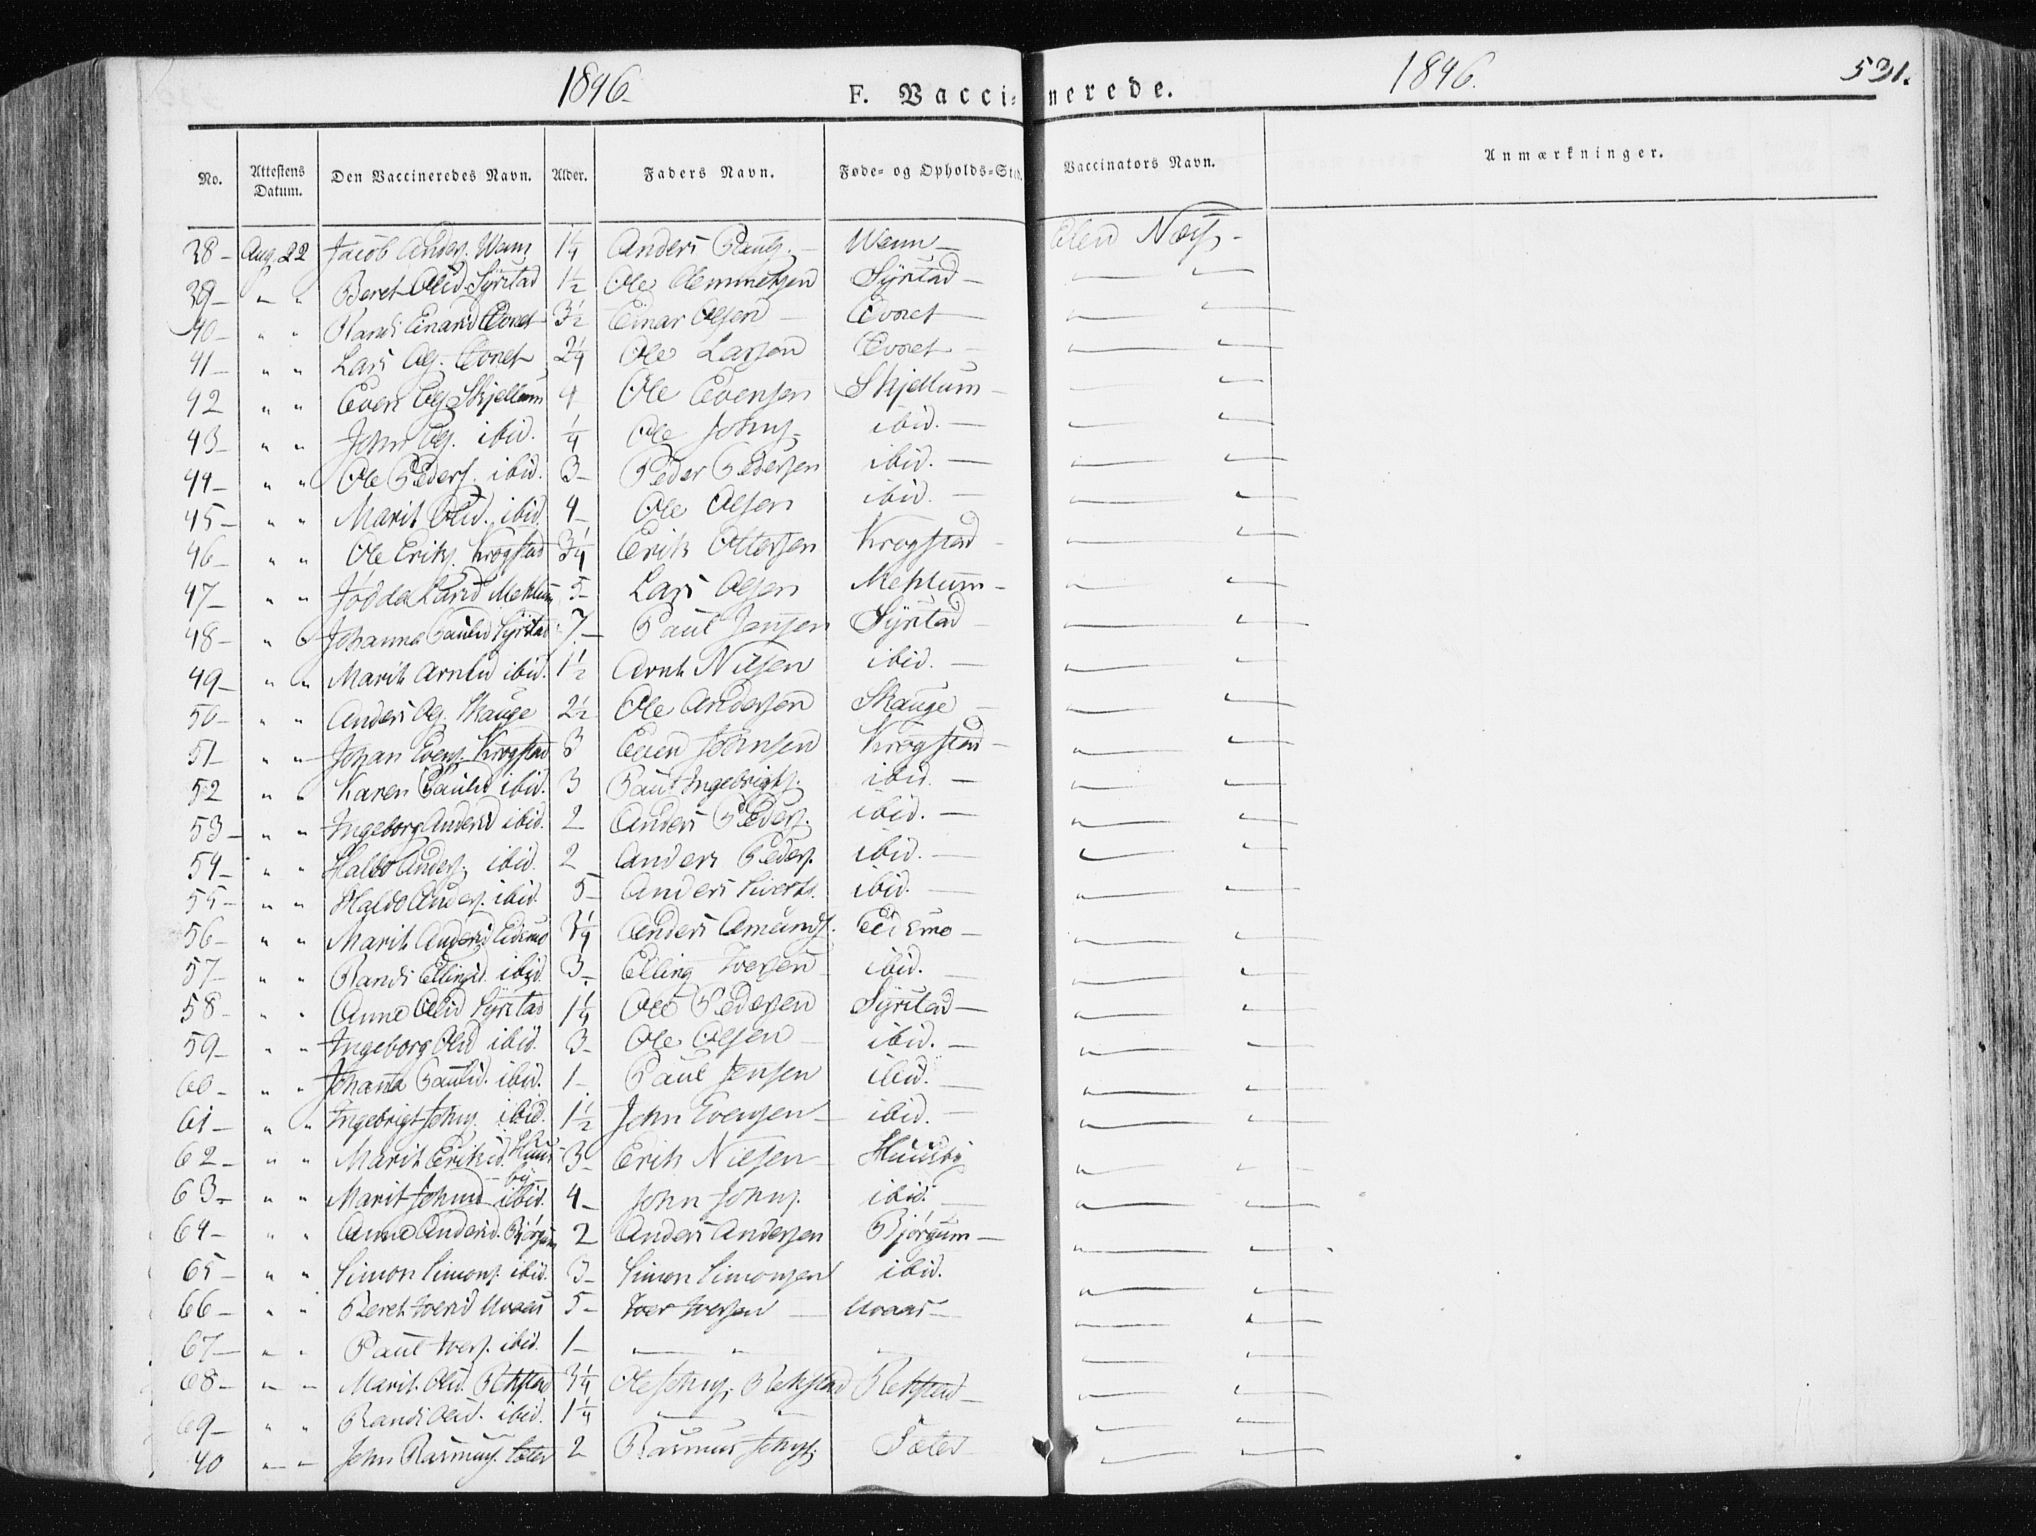 1846. F. Vaccinerede. 1846. 531.
No. Attestens Datum. Den Vaccineredes Navn. Alder. Faders Navn. Føde- og Opholds-Sted. Vaccinators Navn. Anmærkninger.
38 - Aug. 22 Jacob Anders. Wenn 1 1/4 Anders Pauls. - Wenn -
39 - " " Beret Olsd Syrstad 1 1/2 Ole Clemmetsen Syrstad -
40 - " " Randi Einarsd Evnet 3 1/2 Einar Olsen - Evnet -
41 - " " Lars Ols. Evnet 2 1/4 Ole Larsen Evnet -
42 " " Even Ols Skjellum 4 Ole Evensen Skjellum -
43 - " " John Ols. ibid. 1/4 Ole Johns. ibid. -
44 - " " Ole Peders. ibid. 3 - Peder Pedersen ibid. -
45 - " " Marit Olsd. ibid. 4 - Ole Olsen ibid. -
46 - " " Ole Eriks. Krogstad 3 1/4 Erik Ottersen Krogstad -
47 - " " Jødda Larsd Mehlum 5 - Lars Olsen Mehlum -
48 - " " Johanna Paulsd Syrstad 7 - Paul Jensen Syrstad -
49 - " " Marit Arntsd ibid. 1 1/2 Arnt Nilsen ibid. -
50 - " " Anders Ols. Skauge 2 1/2 Ole Andersen Skauge -
51 - " " Johan Evens. Krogstad 3 Even Johnsen Krogstad -
52 " " Karen Paulsd ibid. 3 Paul Ingebrigts. ibid. -
53 - " " Ingeborg Andersd ibid. 2 Anders Peders. ibid. -
54 - " " Haldo Anders. ibid. 2 Anders Peders. ibid. -
55 - " " Haldo Anders. ibid. 5 - Anders Siverts. ibid. -
56 - " " Marit Andersd Eidsmo 3 1/4 Anders Amunds. Eidsmo -
57 - " " Randi Ellingsd. ibid. 3 - Elling Iversen ibid. -
58 - " " Anne Olsd Syrstad 1 1/4 Ole Pedersen Syrstad -
59 - " " Ingeborg Olsd ibid. 3 - Ole Olsen - ibid. -
60 - " " Johanna Paulsd. ibid. 1 - Paul Jensen ibid. -
61 - " " Ingebrigt Johns. ibid. 1 1/2 John Evensen - ibid. -
62 - " " Marit Eriksd. Huusby 3 - Erik Nilsen - Huusby
63 - " " Marit Johnsd ibid. 4 - John Johns. ibid. -
64 - " " Anne Andersd. Bjørgum 2 Anders Andersen Bjørgum -
65 - " " Simon Simons. ibid. 3 - Simon Simonsen ibid.
66 - " " Beret Iversd Uvaas 5 - Iver Iversen - Uvaas -
67 - " " Paul Ivers. ibid. 1 - " "
68 - " " Marit Olsd. Rekstad 3 1/4 Ole Johns. Rekstad Rekstad -
69 - " " Randi Olsd. ibid. 1 1/4
40 " " John Rasmus. Sæter 2 Rasmus Johns. Sæter